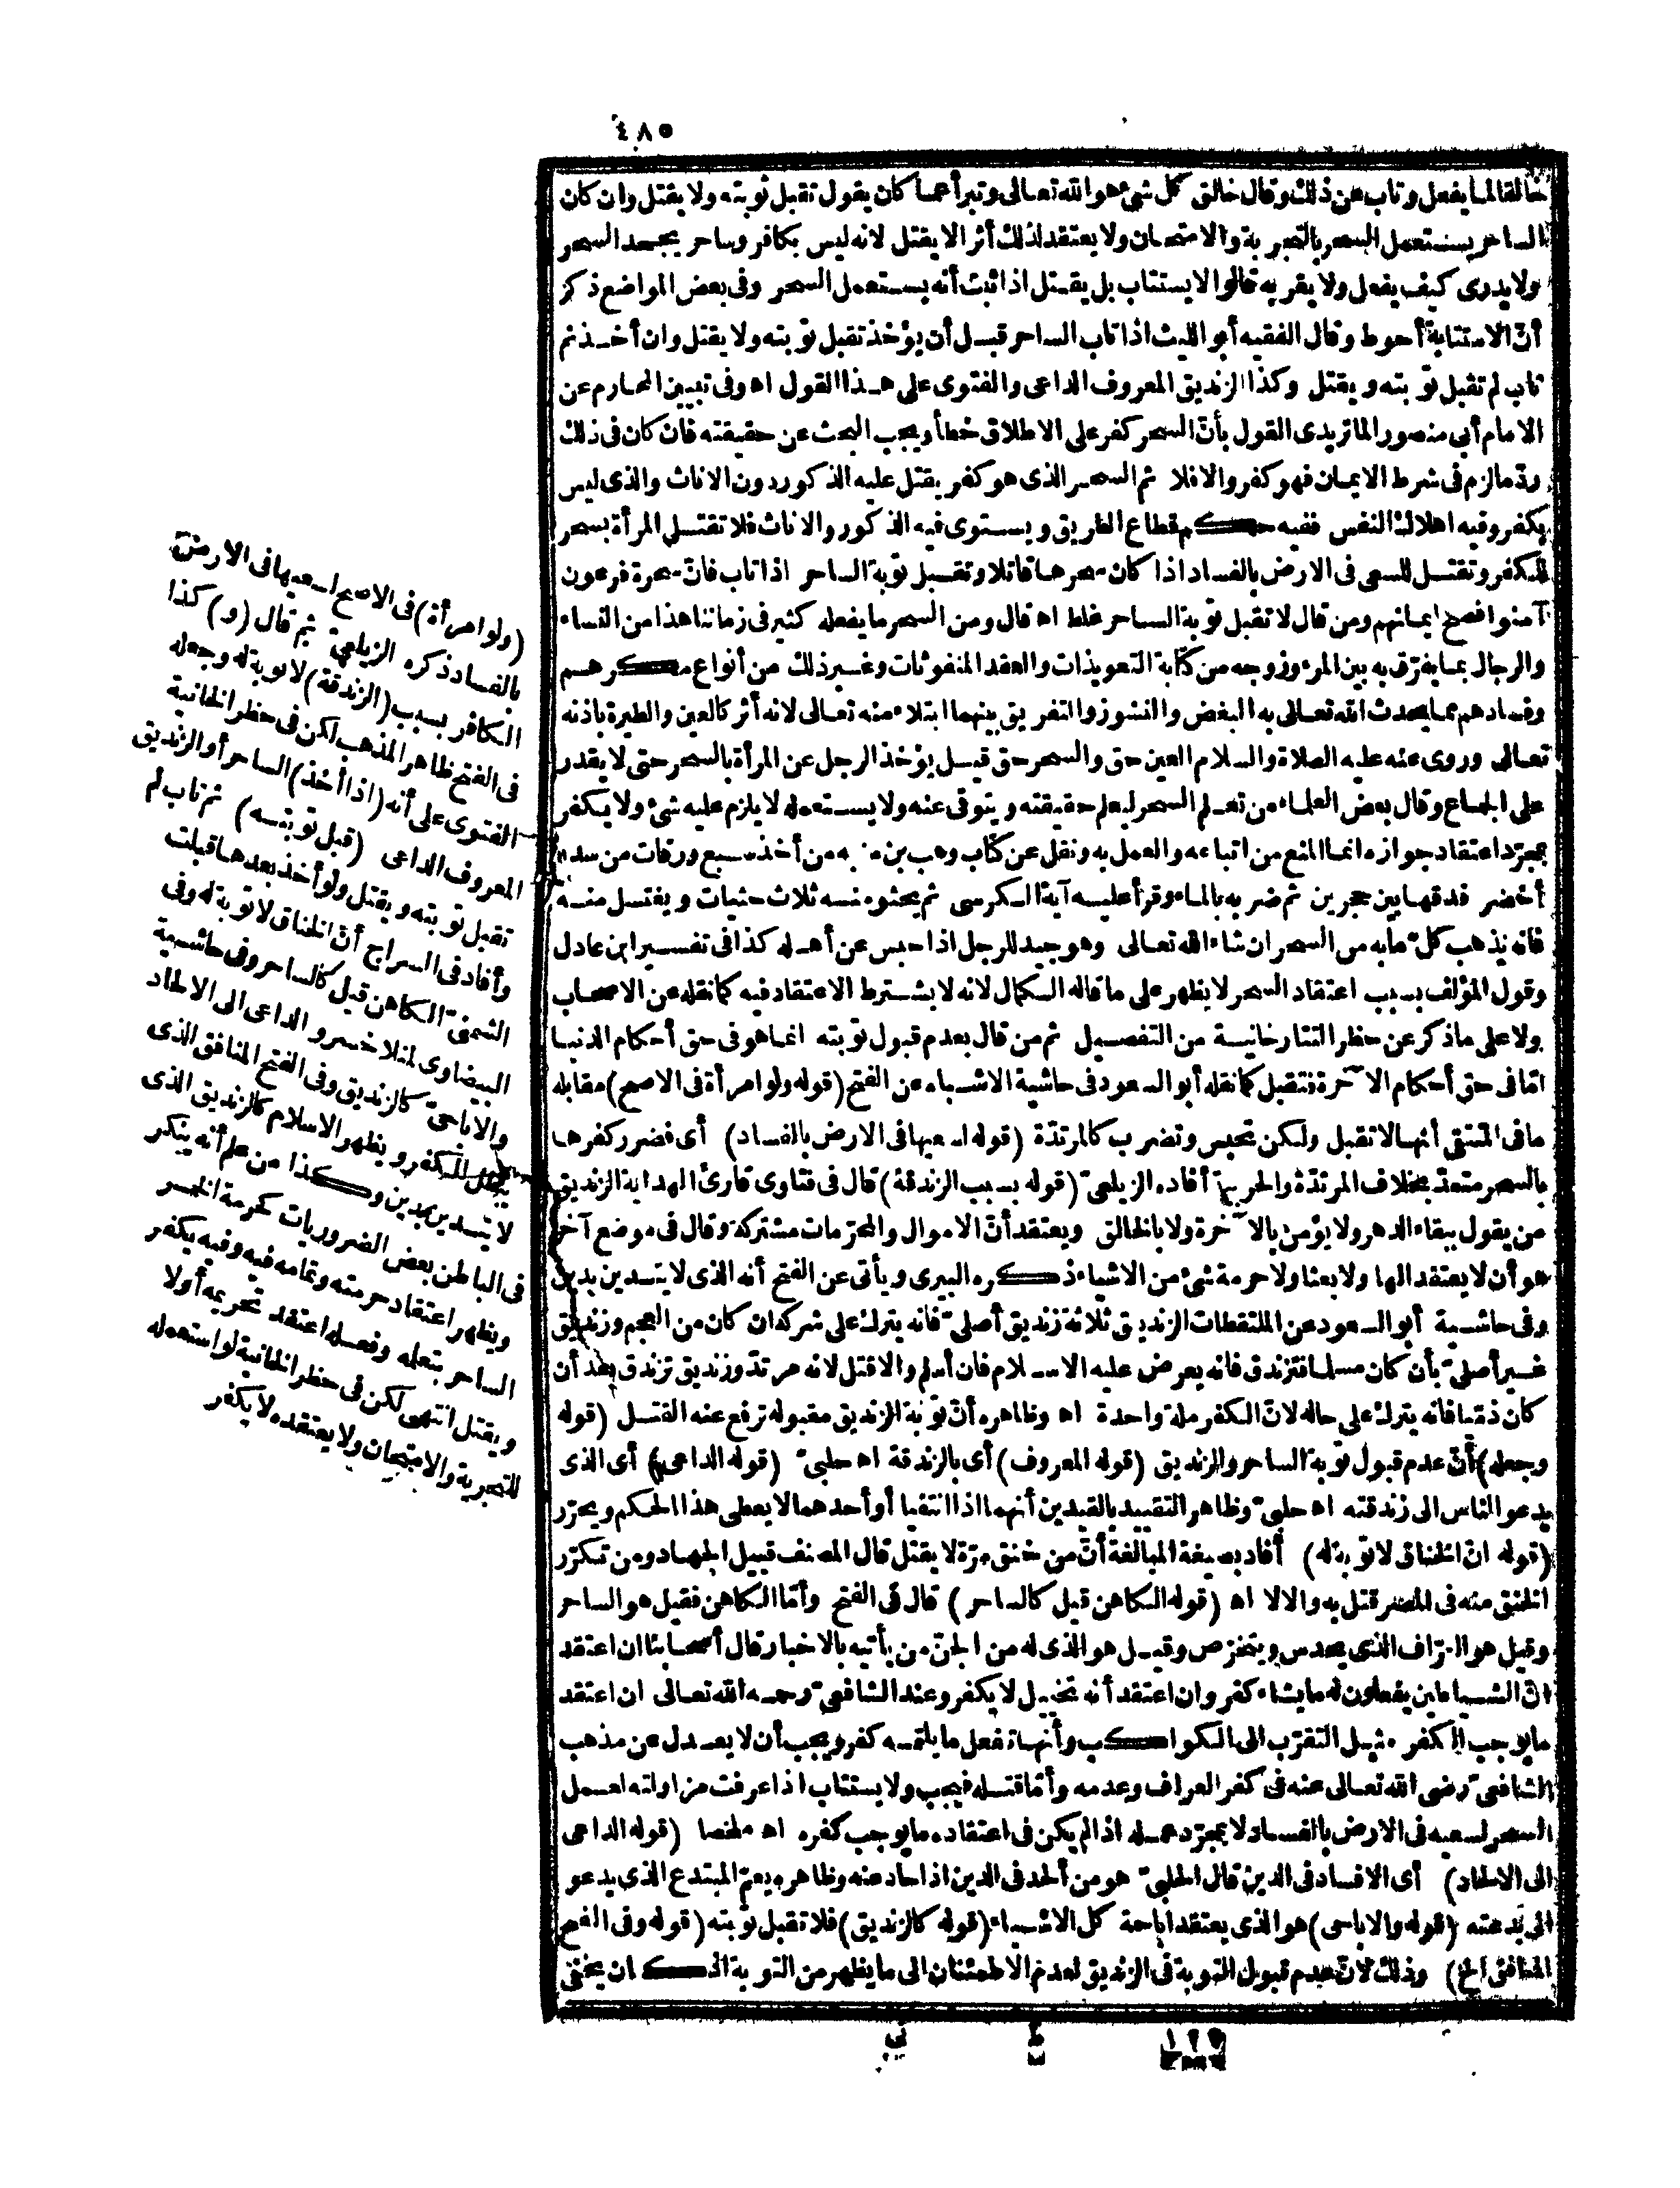 ٤٨٥
خالقا لما يفعل وتاب عن ذلك وقال خالق كل شئ هو الله تعالى وتبرأ عما كان يقول تقبل توبته ولا يقتل وان كان
الساحر يستعمل السحر بالتجربة والامتحان ولا يعتقد لذلك أثرا لا يقتل لانه ليس بكافر وساحر يجحد السحر
ولا يدرى كيف يفعل ولا يقر به قالوا لا يستتاب بل يقتل اذا ثبت أنه يستعمل السحر وفى بعض المواضع ذكر
أنّ الاستتابة أحوط وقال الفقيه أبو الليث اذا تاب الساحر قبل أن يؤخذ تقبل توبته ولا يقتل وان أخذ ثم
تاب لم تقبل توبته ويقتل وكذا الزنديق المعروف الداعى والفتوى على هذا القول اه وفى تبيين المحارم عن
الامام أبى منصور الماتريدى القول بأنّ السحر كفر على الاطلاق خطأ ويجب البحث عن حقيقته فان كان فى ذلك
ردّ ما لزم فى شرط الايمان فهو كفر والا فلا ثم السحر الذى هو كفر يقتل عليه الذكور دون الاناث والذى ليس
بكفر وفيه اهلاك النفس ففيه حكم قطاع الطريق ويستوى فيه الذكور والاناث فلا تقتل المرأة بسحر
للكفر وتقتل للسعى فى الارض بالفساد اذا كان سحرها قاتلا وتقبل توبة الساحر اذا تاب فانّ سحرة فرعون
آمنوا فصح ايمانهم ومن قال لا تقبل توبة الساحر غلط اه قال ومن السحر ما يفعله كثير فى زماننا هذا من النساء
والرجال بما يفرّق به بين المرء وزوجه من كتابة التعويذات والعقد المنفوثات وغير ذلك من أنواع مكرهم
وفسادهم مما يحدث الله تعالى به البغض والنشوز والتفريق بينهما ابتلاء منه تعالى لانه أثر كالعين والطيرة باذنه
تعالى وروى عنه عليه الصلاة والسلام العين حق والسحر حق قيل يؤخذ الرجل عن المرأة بالسحر حتى لا يقدر
على الجماع وقال بعض العلماء من تعلم السحر ليعلم حقيقته ويتوقى عنه ولا يستعمله لا يلزم عليه شئ ولا يكفر
بمجرّد اعتقاد جوازه انما المنع من اتباعه والعمل به ونقل عن كتاب وهب بن منبه من أخذ سبع ورقات من سدر
أخضر فدقها بين حجرين ثم ضربه بالماء وقرأ عليه آية الكرسى ثم يحثو منه ثلاث حثيات ويغتسل منه
فانه يذهب كلّ ما به من السحر ان شاء الله تعالى وهو جيد للرجل اذا حبس عن أهله كذا فى تفسير ابن عادل
وقول المؤلف بسبب اعتقاد السحر لا يظهر على ما قاله الكمال لانه لا يشترط الاعتقاد فيه كما نقله عن الاصحاب
ولا على ما ذكر عن حظر التتارخانية من التفصيل ثم من قال بعدم قبول توبته انما هو فى حق أحكام الدنيا
امّا فى حق أحكام الآخرة فتقبل كما نقله أبو السعود فى حاشية الاشباه عن الفتح (قوله ولو امرأة فى الاصح) مقابله
ما فى المنتقى أنها لا تقبل ولكن تحبس وتضرب كالمرتدّة (قوله لسعيها فى الارض بالفساد) أى فضرر كفرها
بالسحر متعدّ بخلاف المرتدّة والحربية أفاده الزيلعىّ (قوله بسبب الزندقة) قال فى فتاوى قارئ الهداية الزنديق
من يقول ببقاء الدهر ولا يؤمن بالآخرة ولا بالخالق ويعتقد أنّ الاموال والمحرّمات مشتركة وقال فى موضع آخر
هو أن لا يعتقد الها ولا بعثا ولا حرمة شئ من الاشياء ذكره البيرى ويأتى عن الفتح أنه الذى لا يتدين بدين
وفى حاشية أبو السعود عن الملتقطات الزنديق ثلاثة زنديق أصلىّ فانه يترك على شركه ان كان من العجم وزنديق
غير أصلىّ بأن كان مسلما فتزندق فانه يعرض عليه الاسلام فان أسلم والا قتل لانه مرتدّ وزنديق تزندق بعد أن
كان ذمّيا فانه يترك على حاله لانّ الكفر ملة واحدة اه وظاهره أنّ توبة الزنديق مقبولة ترفع عنه القتل (قوله
وجعله) أنّ عدم قبول توبة الساحر والزنديق (قوله المعروف) أى بالزندقة اه حلبىّ (قوله الداعى) أى الذى
يدعو الناس الى زندقته اه حلبىّ وظاهر التقييد بالقيدين أنهما اذا انتفيا أو أحدهما لا يعطى هذا الحكم ويحرّر
(قوله انّ الخناق لا توبة له) أفاد بصيغة المبالغة أنّ من خنق مرّة لا يقتل قال المصنف قبيل الجهاد ومن تكرّر
الخنق منه فى المصر قتل به والا لا اه (قوله الكاهن قيل كالساحر) قال فى الفتح وأمّا الكاهن فقيل هو الساحر
وقيل هو العرّاف الذى يحدس ويتخرّص وقيل هو الذى له من الجنّ من يأتيه بالاخبار قال أصحابنا ان اعتقد
انّ الشياطين يفعلون له ما يشاء كفر وان اعتقد أنه تخييل لا يكفر وعند الشافعىّ رحمه الله تعالى ان اعتقد
ما يوجب الكفر مثل التقرّب الى الكواكب وأنها تفعل ما يلتمسه كفر ويجب أن لا يعدل عن مذهب
الشافعىّ رضى الله تعالى عنه فى كفر العراف وعدمه وأمّا قتله فيجب ولا يستتاب اذا عرفت مزاولته لعمل
السحر لسعيه فى الارض بالفساد لا بمجرّد عمله اذا لم يكن فى اعتقاده ما يوجب كفره اه ملخصا (قوله الداعى
الى الالحاد) أى الافساد فى الدين قال الحلبىّ هو من ألحد فى الدين اذا حاد عنه وظاهره يعمّ المبتدع الذى يدعو
الى بدعته (قوله والاباحى) هو الذى يعتقد اباحة كل الاشياء (قوله كالزنديق) فلا تقبل توبته (قوله وفى الفتح
المنافق الخ) وذلك لانّ عدم قبول التوبة فى الزنديق لعدم الاطمئنان الى ما يظهر من التوبة اذ كان يخفى
(ولو امرأة) فى الاصح لسعيها فى الارض
بالفساد ذكره الزيلعىّ ثم قال (و) كذا
الكافر بسبب (الزندقة) لا توبة له وجعله
فى الفتح ظاهر المذهب لكن فى حظر الخانية
الفتوى على أنه (اذا أخذ) الساحر أو الزنديق
المعروف الداعى (قبل توبته) ثم تاب لم
تقبل توبته ويقتل ولو أخذ بعدها قبلت
وأفاد فى السراج أنّ الخناق لا توبة له وفى
الشمنىّ الكاهن قيل كالساحر وفى حاشية
البيضاوى لمنلا خسرو الداعى الى الالحاد
والاباحىّ كالزنديق وفى الفتح المنافق الذى
يبطن الكفر ويظهر الاسلام كالزنديق الذى
لا يتدين بدين وكذا من علم أنه ينكر
فى الباطن بعض الضروريات كحرمة الخمر
ويظهر اعتقاد حرمته وتمامه فيه وفيه يكفر
الساحر بتعلمه وفعله اعتقد تحريمه أولا
ويقتل انتهى لكن فى حظر الخانية لو استعمله
للتجربة والامتحان ولا يعتقده لا يكفر
١٢٢ ط نى